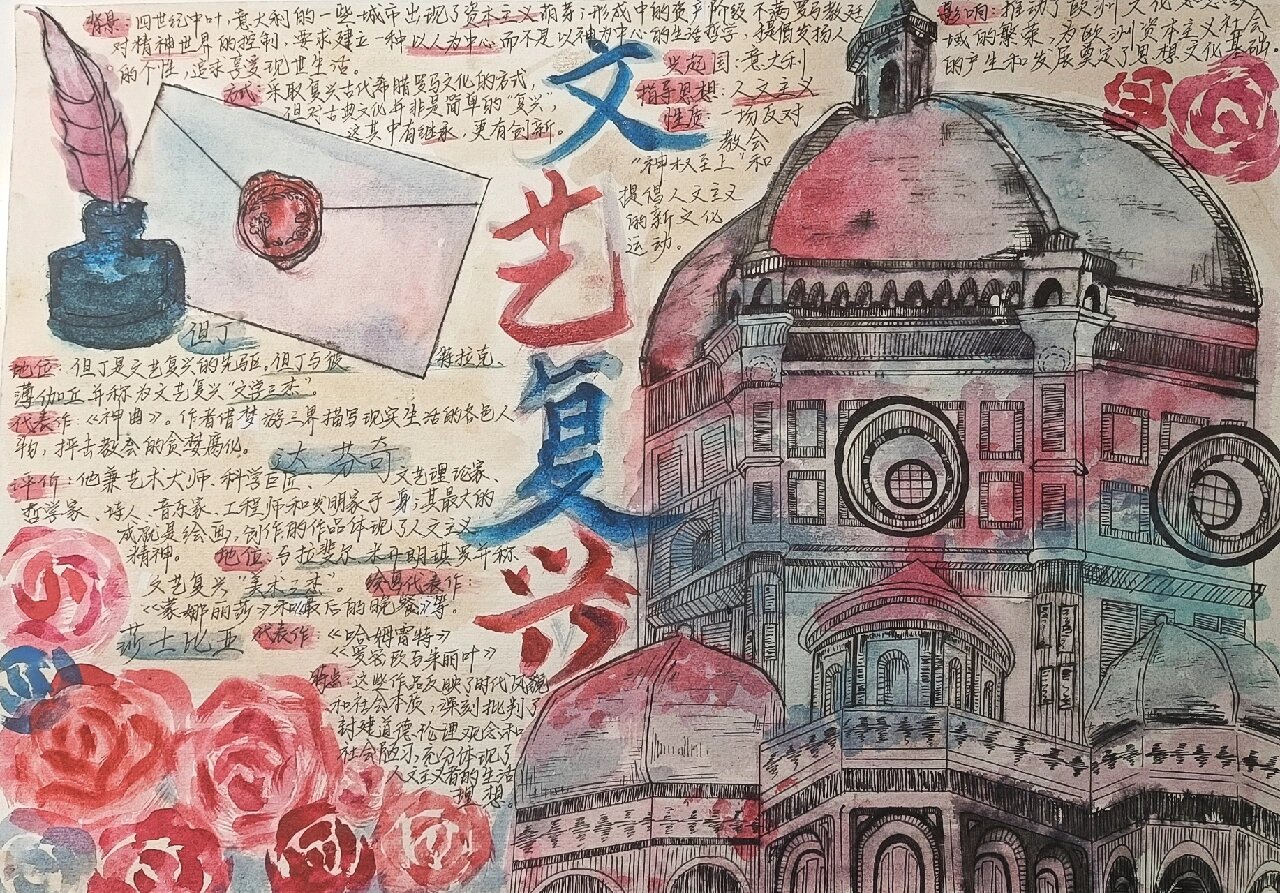 背景：四世纪中叶，意大利的一些城市出现了资本主义萌芽；形成中的资产阶级不满罗马教廷
对精神世界的控制，要求建立一种以人为中心而不是以神为中心的生活哲学，提倡发扬人
的个性，追求享受现世生活。
方式：采取复兴古代希腊罗马文化的方式，
但对古典文化并非是简单的“复兴”，
这其中有继承，更有创新。
文艺复兴
发起国：意大利
指导思想：人文主义
性质：一场反对
教会
“神权至上”和
提倡人文主义
的新文化
运动。
影响：推动了欧洲文化
域的繁荣，为欧洲资本主义社会
的产生和发展奠定了思想文化基础
但丁
地位：但丁是文艺复兴的先驱，但丁与彼特拉克、
薄伽丘并称为文艺复兴“文学三杰”。
代表作：《神曲》。作者借梦游三界描写现实生活的各色人
物，抨击教会的贪婪腐化。
达芬奇
评价：他兼艺术大师、科学巨匠、文艺理论家、
哲学家、诗人、音乐家、工程师和发明家于一身，其最大的
成就是绘画，创作的作品体现了人文主义
精神。 地位：与拉斐尔、米开朗琪罗并称
文艺复兴“美术三杰”。 绘画代表作：
《蒙娜丽莎》和《最后的晚餐》等。
莎士比亚 代表作：《哈姆雷特》
《罗密欧与朱丽叶》
特点：这些作品反映了时代风貌
和社会本质，深刻批判了
封建道德伦理观念和
社会陋习，充分体现了
人文主义者的生活
理想。